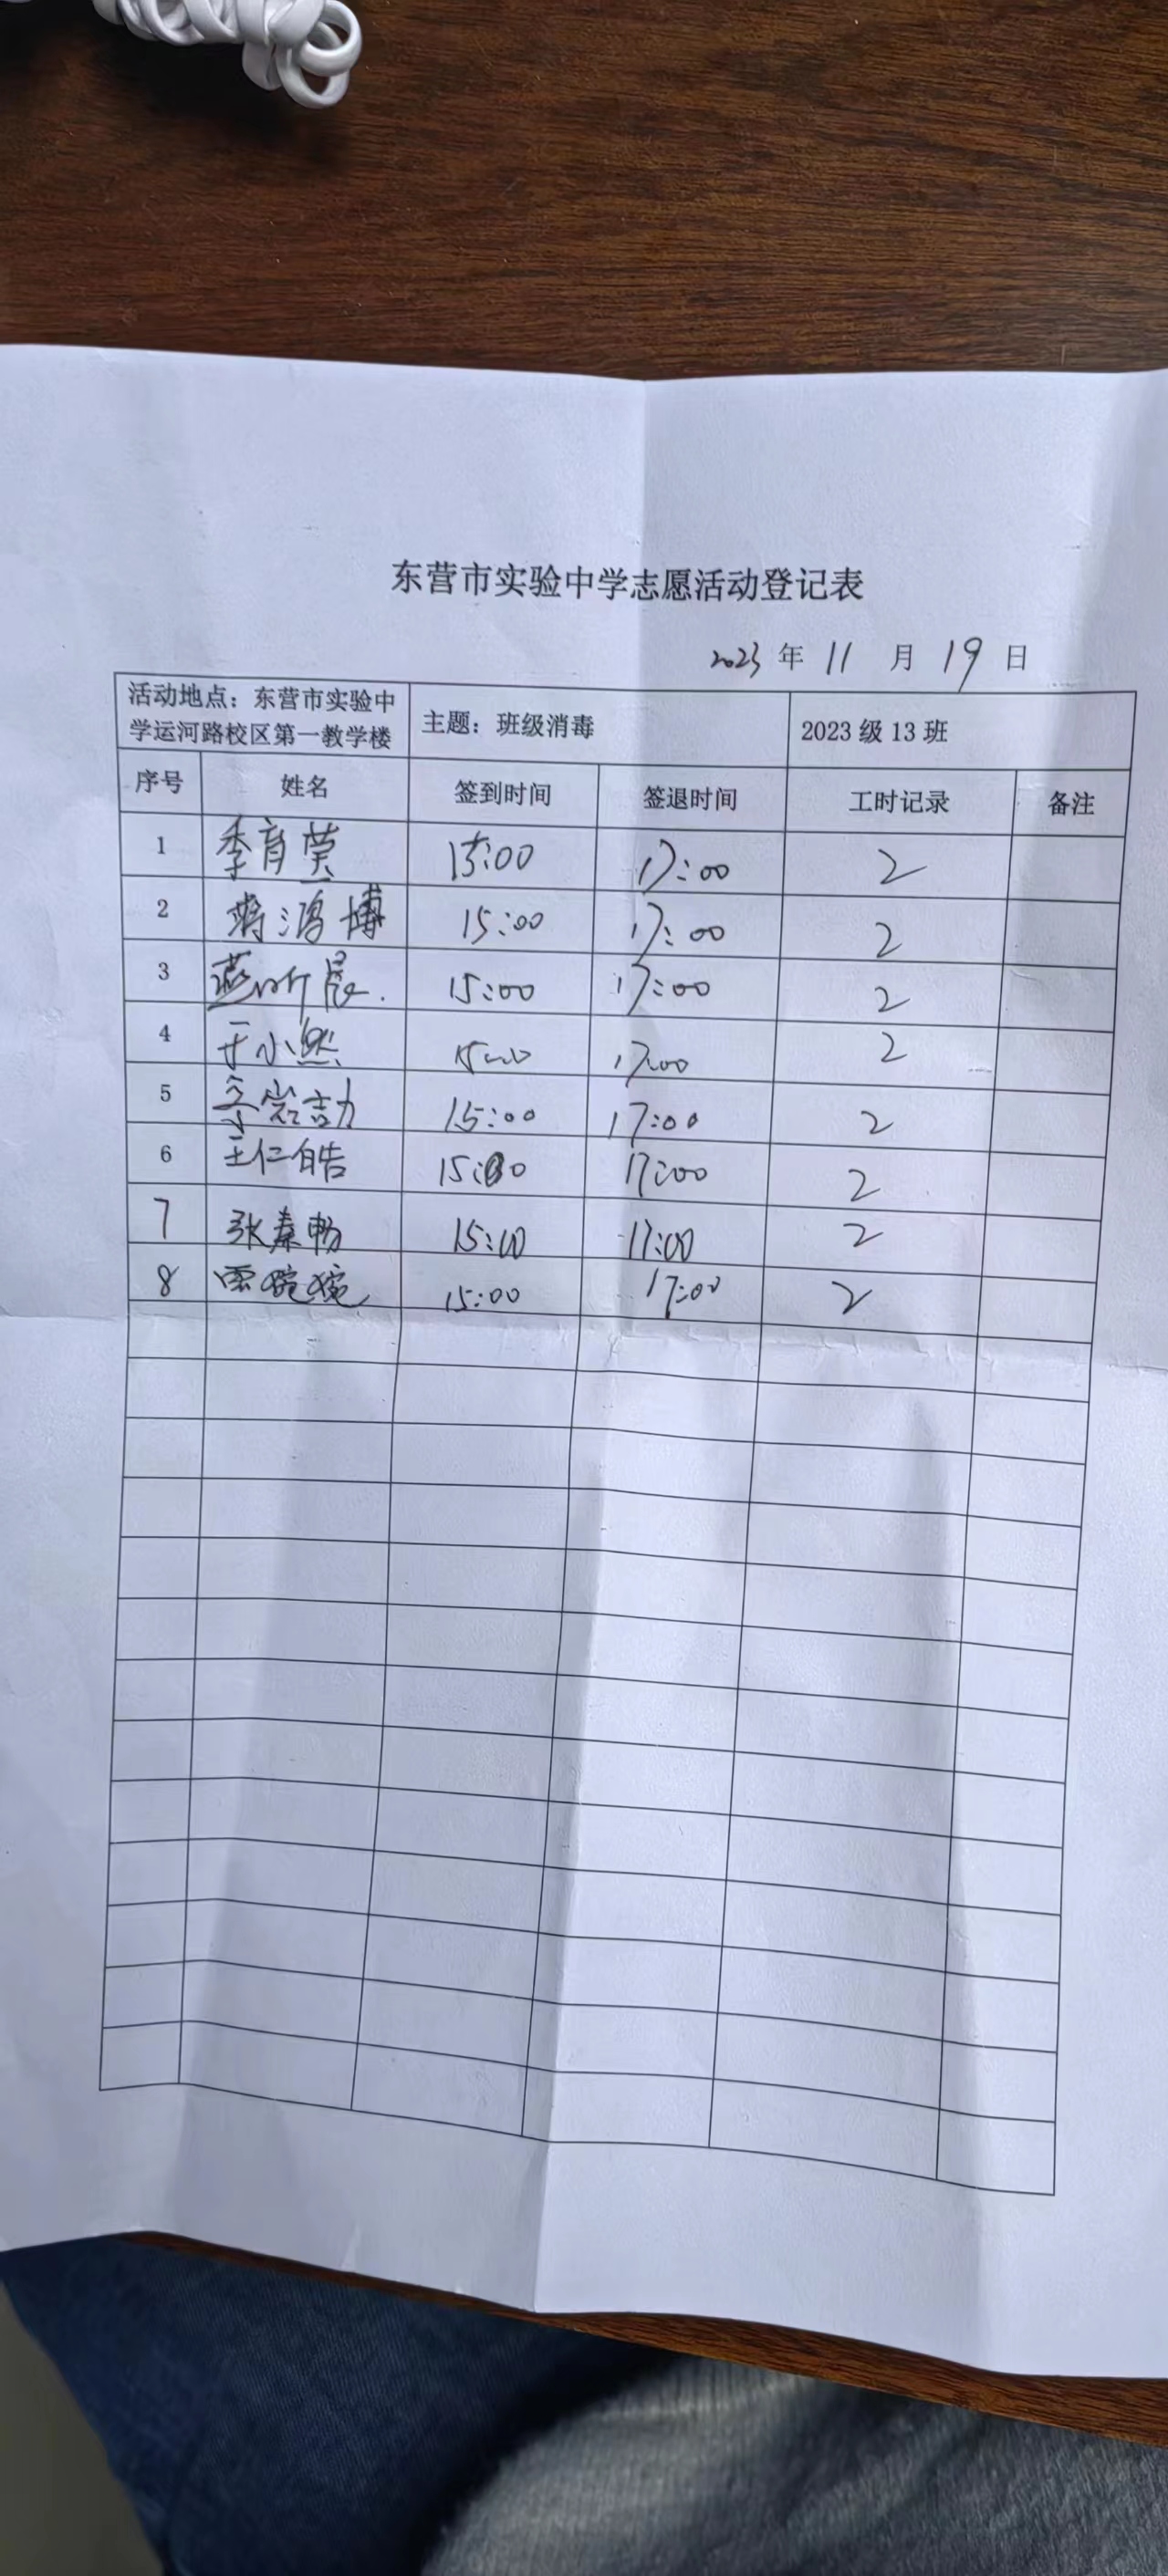 东营市实验中学志愿活动登记表
2023 年 11 月 19 日
活动地点：东营市实验中学运河路校区第一教学楼 主题：班级消毒 2023 级 13 班
序号 姓名 签到时间 签退时间 工时记录 备注
1 季育莹 15:00 17:00 2
2 蒋鸿博 15:00 17:00 2
3 燕昕晨 15:00 17:00 2
4 于小然 15:00 17:00 2
5 15:00 17:00 2
6 王仁皓 15:00 17:00 2
7 张秦畅 15:00 17:00 2
8 15:00 17:00 2